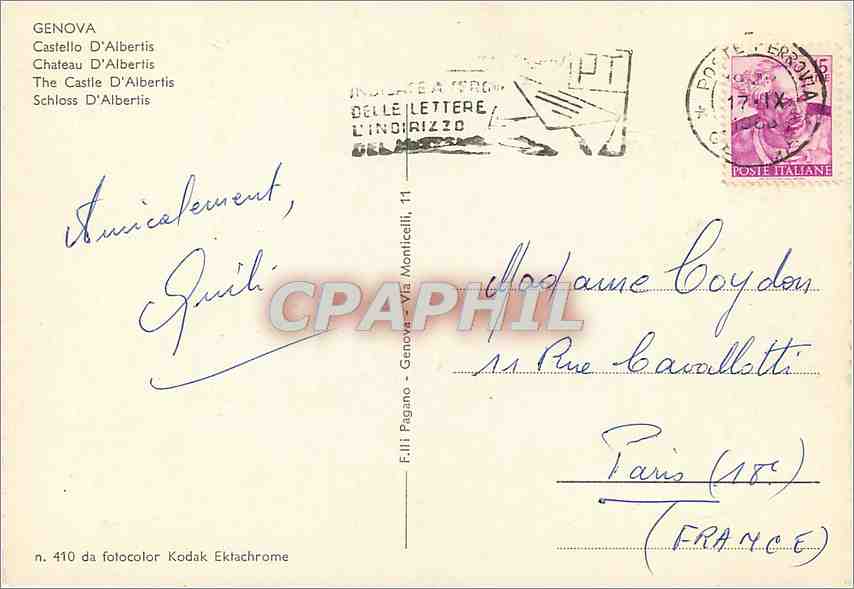 GENOVA
Castello D'Albertis
Chateau D'Albertis
The Castle D'Albertis
Schloss D'Albertis
PT
DELLE LETTERE
L'INDIRIZZO
DEL
POSTE FERROVIA
17 IX
15
POSTE ITALIANE
Amicalement,
CPAPHIL
F.lli Pagano - Genova - Via Monticelli, 11
Madame Coydon
11 Rue Cavallotti
Paris (18e)
(FRANCE)
n. 410 da fotocolor Kodak Ektachrome